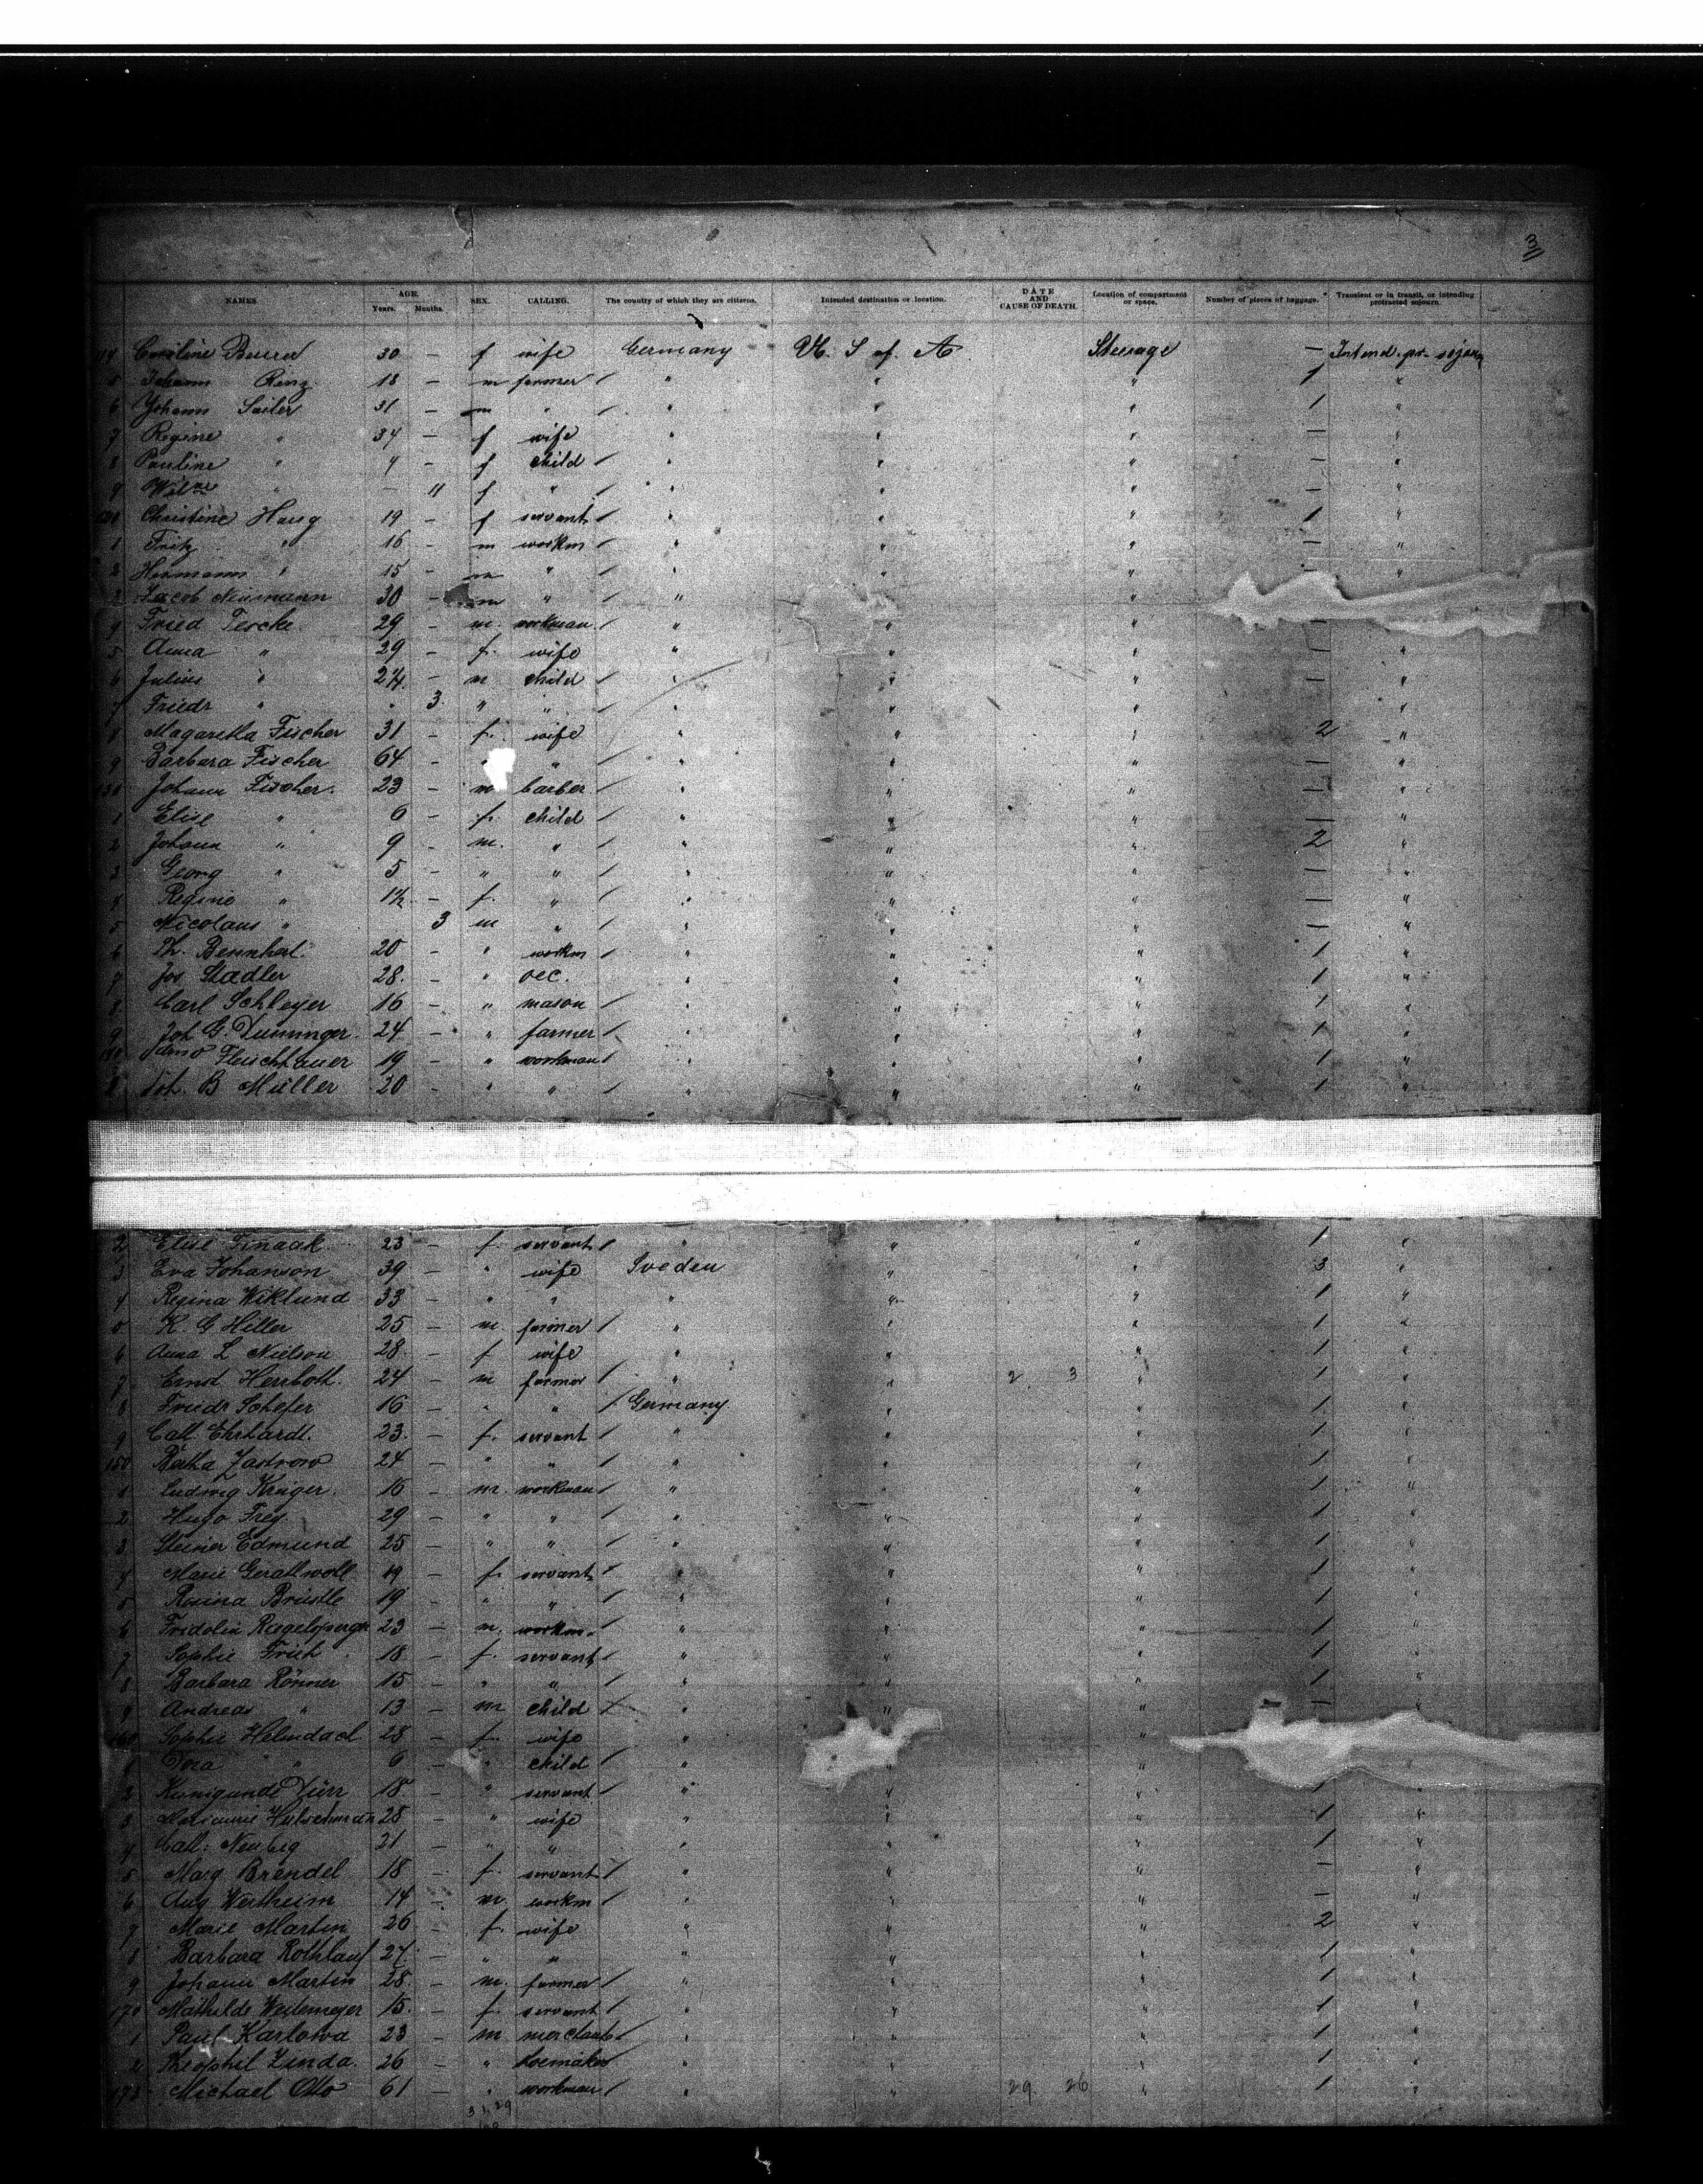 3
NAMES. AGE. Years. Months. SEX. CALLING. The country of which they are citizens. Intended destination or location. DATE AND CAUSE OF DEATH. Location of compartment or space. Number of pieces of baggage. Transient or in transit, or intending protracted sojourn.
30 – f wife Germany U. S of. A Steerage – Intend. pr. sojourn
5 Johann Renz 18 – m farmer / " " " 1 "
6 Johann Sailer 31 – m " / " " " 1 "
7 Regine " 34 – f wife " " " – "
8 Pauline " 4 – f child / " " " – "
9 – 11 f " / " " " – "
120 Christine Haug 19 – f servant / " " " 1 "
1 Fritz " 16 – m workm / " " " – "
2 Hermann " 15 – m " / " " " – "
3 Jacob Neumann 30 – m " / " "
4 Fried Tescke 29 – m. workman / " " " –
5 Anna " 29 – f. wife " " " – "
6 Julius " m child / " " " – "
7 Friedr " " 3 " " / " " " "
8 Margaretha Fischer 31 – f. wife " " " 2 "
9 Barbara Fischer 64 – " / " " " – "
130 Johann Fischer. 23 – m barber / " " " – "
1 Elise " 6 – f. child / " " " – "
2 Johann " 9 – m. " / " " " 2 "
3 Georg " 5 – " " / " " " – "
4 Regine " 1½ – f. " / " " " – "
5 Nicolaus " 3 m " / " " " – "
6 Th. 20 – " workm / " " " 1 "
7 Jos Stadler 28. – " oec. " " " 1 "
8 Carl Schleyer 16 – " mason / " " " 1 "
9 Joh G. 24 – " farmer / " " " 1 "
140 Fleischhauer 19 – " workman / " " " 1 "
Joh. B Müller 20 – " " / " " " 1 "
2 Elise 23 – f. servant / " " " 1 "
3 Eva Johanson 39 – " wife Sveden " " 3 "
4 Regina Wiklund 33 – " " " " " 1 "
5 K. G Hiller 25 – m. farmer / " " " 1 "
6 Anna L Nielson 28. – f wife " " " 1 "
7 Ernst Herrboth. 24 – m farmer / " " 2 3 " 1 "
8 Friedr Schefer 16 – " " / Germany " " 1 "
9 Cath. Ehrhardt. 23. – f. servant / " " " 1 "
150 Zastrow 24 – " " / " " " 1 "
1 Ludwig Krüger. 16 – m. workman / " " " 1 "
2 Hugo Frey. 29 – " " / " " " 1 "
3 Steiner Edmund 25 – " " / " " " 1 "
4 Marie Gerathwoll 19 – f. servant / " " " 1 "
5 Rosina Brüstle 19 – " " / " " " 1 "
6 Fridolin 23 – m. workm. " " " 1 "
7 Sophie 18. – f. servant / " " " 1 "
8 Barbara Römer 15 – " " / " " " 1 "
9 Andreas " 13 – m child / " " " – "
160 Sophie 28 – f. wife " "
1 Dora " 6 – " child " "
2 Kunigunde Dürr 18 – " servant " " " 1 "
3 28 – " wife " " " 1 "
4 Cath: Neuberg 21 – " " " " " 1 "
5 Marg Brendel 18 – f. servant / " " " – "
6 Aug Wertheim 14 – m. workm / " " " – "
7 Marie Martin 26 – f. wife " " " 2 "
8 Barbara Rothlauf – " " " " " 1 "
9 Johann Martin 28. – m. farmer / " " " 1 "
170 Mathilde 15. – f. servant / " " " 1 "
1 Paul Karlowa 23 – m merchant / " " " 1 "
2 Theophil Zinda. 26 – " / " " " 1 "
173 Michael Otto 61 – " workman / " " 29. 26 " 1 "